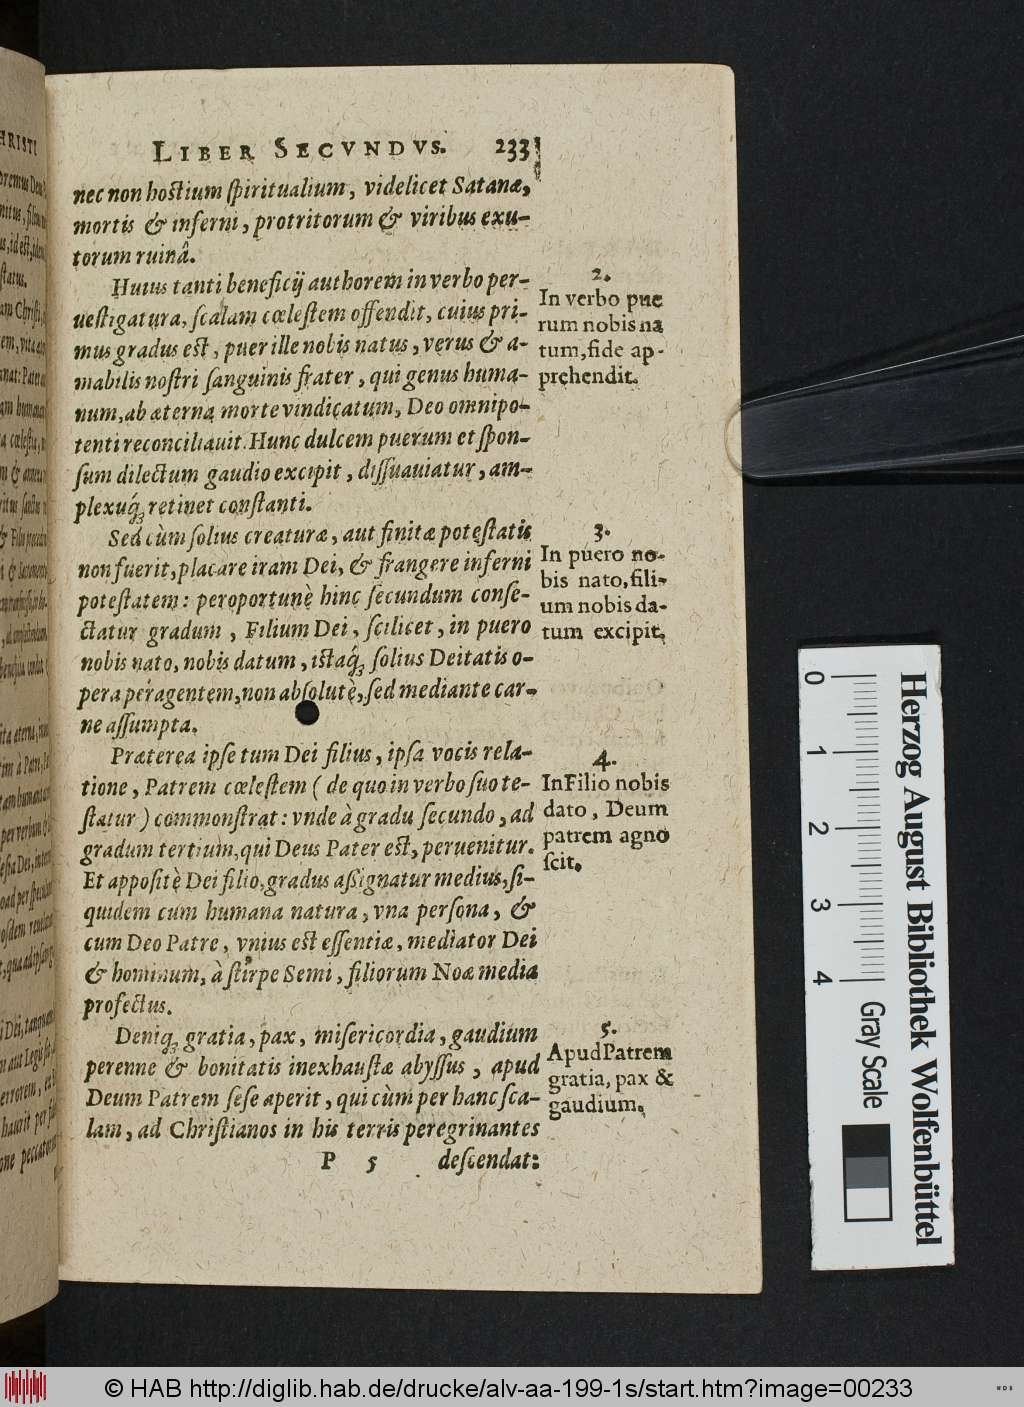 LIBER SECVNDVS. 233
nec non hostium spiritualium, videlicet Satanæ,
mortis & inferni, protritorum & viribus exu-
torum ruinâ.
Huius tanti beneficij authorem in verbo per-
uestigatura, scalam cœlestem offendit, cuius pri-
mus gradus est, puer ille nobis natus, verus & a-
mabilis nostri sanguinis frater, qui genus huma-
num, ab æterna morte vindicatum, Deo omnipo-
tenti reconciliauit. Hunc dulcem puerum et spon-
sum dilectum gaudio excipit, dissuauiatur, am-
plexuq́; retinet constanti.
2.
In verbo pue
rum nobis na
tum, fide ap-
prehendit.
Sed cùm solius creaturæ, aut finitæ potestatis
non fuerit, placare iram Dei, & frangere inferni
potestatem: peroportunè hinc secundum conse-
ctatur gradum, Filium Dei, scilicet, in puero
nobis nato, nobis datum, istaq́; solius Deitatis o-
pera peragentem, non absolutè, sed mediante car-
ne assumpta.
3.
In puero no-
bis nato, fili-
um nobis da-
tum excipit.
Præterea ipse tum Dei filius, ipsa vocis rela-
tione, Patrem cœlestem ( de quo in verbo suo te-
statur ) commonstrat: vnde à gradu secundo, ad
gradum tertium, qui Deus Pater est, peruenitur.
Et appositè Dei filio, gradus assignatur medius, si-
quidem cum humana natura, vna persona, &
cum Deo Patre, vnius est essentiæ, mediator Dei
& hominum, à stirpe Semi, filiorum Noæ media
profectus.
4.
In Filio nobis
dato, Deum
patrem agno
scit.
Deniq; gratia, pax, misericordia, gaudium
perenne & bonitatis inexhaustæ abyssus, apud
Deum Patrem sese aperit, qui cùm per hanc sca-
lam, ad Christianos in his terris peregrinantes
5.
Apud Patrem
gratia, pax &
gaudium.
P 5 descendat:
0 1 2 3 4
Herzog August Bibliothek Wolfenbüttel
Gray Scale
© HAB http://diglib.hab.de/drucke/alv-aa-199-1s/start.htm?image=00233